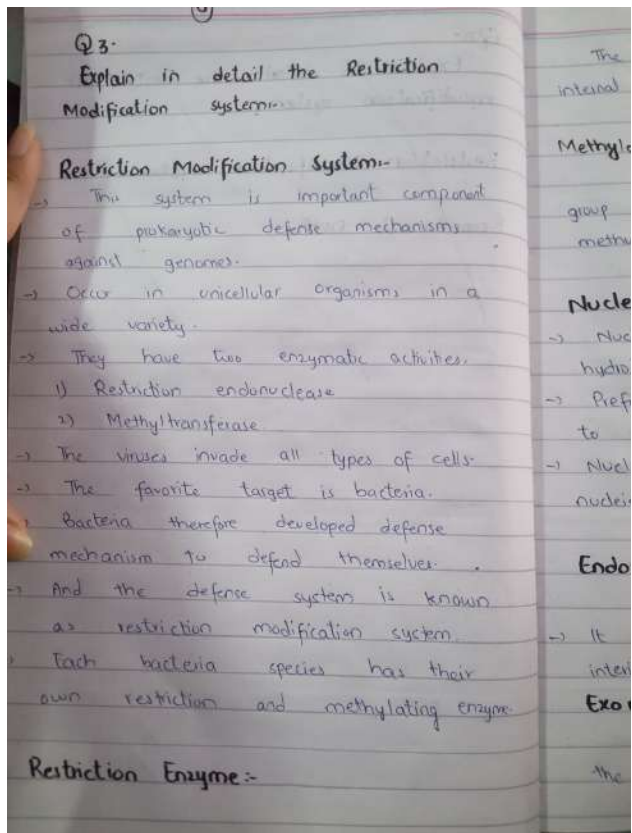 Q3.
Explain in detail the Restriction
Modification system:-
Restriction Modification System:-
→ This system is important component
of prokaryotic defense mechanisms
against genomes.
→ Occur in unicellular organisms in a
wide variety.
→ They have two enzymatic activities.
1) Restriction endonuclease
2) Methyltransferase
→ The viruses invade all types of cells.
→ The favorite target is bacteria.
→ Bacteria therefore developed defense
mechanism to defend themselves.
→ And the defense system is known
as restriction modification system.
→ Each bacteria species has their
own restriction and methylating enzyme.
Restriction Enzyme:-
The
internal
Methyla
group
methy
Nucle
→ Nuc
hydro
→ Pref
to
→ Nucl
nucleis
Endo
→ It
interi
Exo
the